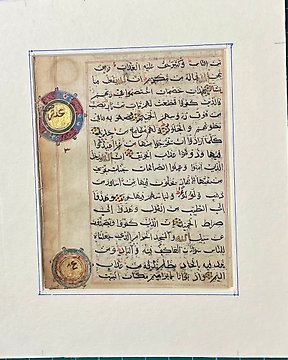 من الناس وكثير حق عليه العذاب ومن يهن
الله فما له من مكرم إن الله يفعل ما
يشاء هذان خصمان اختصموا في ربهم
فالذين كفروا قطعت لهم ثياب من نار يصب
من فوق رءوسهم الحميم يصهر به ما في
بطونهم والجلود ولهم مقامع من حديد
كلما أرادوا أن يخرجوا منها من غم أعيدوا
فيها وذوقوا عذاب الحريق إن الله يدخل
الذين آمنوا وعملوا الصالحات جنات تجري من
تحتها الأنهار يحلون فيها من أساور من
ذهب ولؤلؤا ولباسهم فيها حرير وهدوا
إلى الطيب من القول وهدوا إلى
صراط الحميد إن الذين كفروا ويصدون
عن سبيل الله والمسجد الحرام الذي جعلناه
للناس سواء العاكف فيه والباد ومن يرد
فيه بإلحاد بظلم نذقه من عذاب
أليم وإذ بوأنا لإبراهيم مكان البيت
عشر